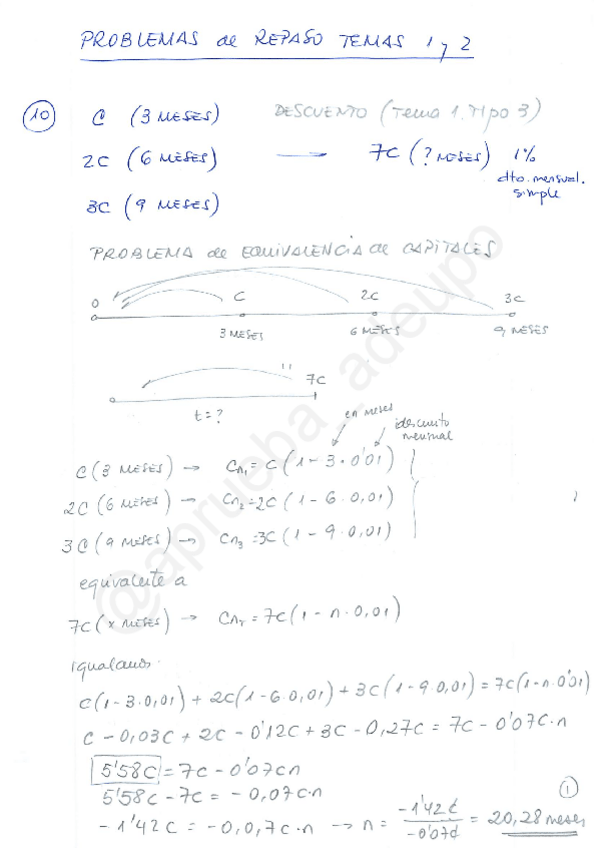 PROBLEMAS de REPASO TEMAS 1 y 2
10 C (3 MESES) DESCUENTO (Tema 1. TIPO 3)
2C (6 MESES) — 7C (? MESES) 1%
dto. mensual.
simple
3C (9 MESES)
PROBLEMA de EQUIVALENCIA de CAPITALES
0 C 2C 3C
3 MESES 6 MESES 9 MESES
7C
t = ?
en meses
descuento
mensual
C (3 MESES) → Cn₁ = C (1 - 3 · 0'01)
2C (6 MESES) → Cn₂ = 2C (1 - 6 · 0,01)
3C (9 MESES) → Cn₃ = 3C (1 - 9 · 0,01)
equivalente a
7C (x MESES) → Cnᵣ = 7C (1 - n · 0,01)
igualamos
C(1 - 3 · 0,01) + 2C(1 - 6 · 0,01) + 3C(1 - 9 · 0,01) = 7C(1 - n · 0'01)
C - 0,03C + 2C - 0'12C + 3C - 0,27C = 7C - 0'07C · n
5'58C = 7C - 0'07Cn
5'58C - 7C = - 0,07C · n
- 1'42C = -0,0,7C · n → n = -1'42C / -0'07C = 20,28 meses
1
@aprueba_adeupo